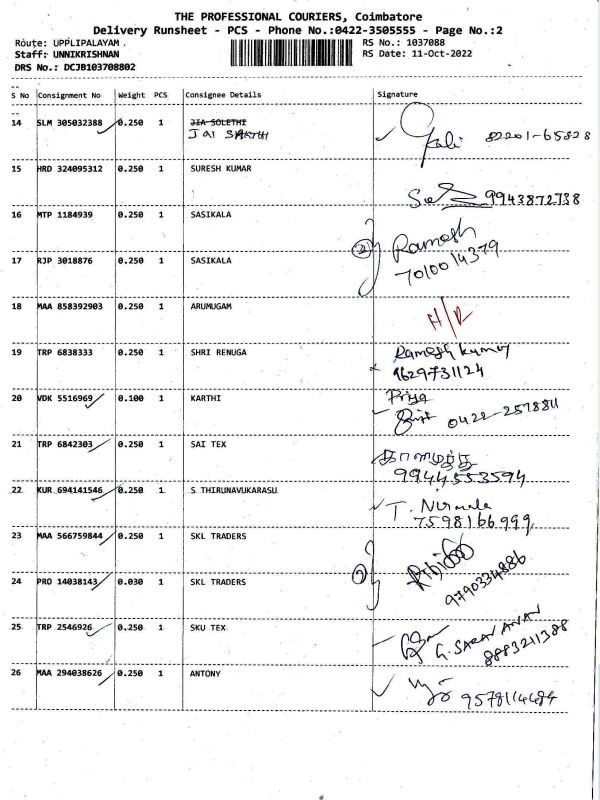 THE PROFESSIONAL COURIERS, Coimbatore
Delivery Runsheet - PCS - Phone No.:0422-3505555 - Page No.:2
Route: UPPLIPALAYAM .
RS No.: 1037088
Staff: UNNIKRISHNAN
RS Date: 11-Oct-2022
DRS No.: DCJB103708802
S No Consignment No Weight PCS Consignee Details Signature
14 SLM 305032388 0.250 1 JIA SOLETHI
JAI SAKTHI
82201-65828
15 HRD 324095312 0.250 1 SURESH KUMAR
9943872738
16 MTP 1184939 0.250 1 SASIKALA
② Ramesh
7010014379
17 RJP 3018876 0.250 1 SASIKALA
18 MAA 858392903 0.250 1 ARUMUGAM
H/R
19 TRP 6838333 0.250 1 SHRI RENUGA
Ramesh kumar
9629731124
20 VDK 5516969 0.100 1 KARTHI
Priya
21 TRP 6842303 0.250 1 SAI TEX
9944553594
22 KUR 694141546 0.250 1 S THIRUNAVUKARASU
T. Nirmala
7598166999
23 MAA 566759844 0.250 1 SKL TRADERS
24 PRO 14038143 0.030 1 SKL TRADERS
9790334886
25 TRP 2546926 0.250 1 SKU TEX
G. SARAVANAN
8883211388
26 MAA 294038626 0.250 1 ANTONY
9578114484